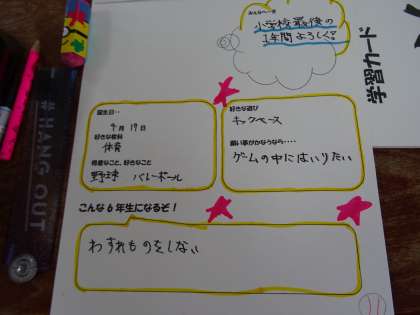 みんなへ一言
小学校最後の
1年間よろしく?
学習カード
誕生日‥
9月19日
好きな教科
体育
得意なこと、好きなこと
野球 バレーボール
好きな遊び
キックベース
願い事がかなうなら‥‥
ゲームの中にはいりたい
こんな6年生になるぞ!
わすれものをしない
#HANG OUT